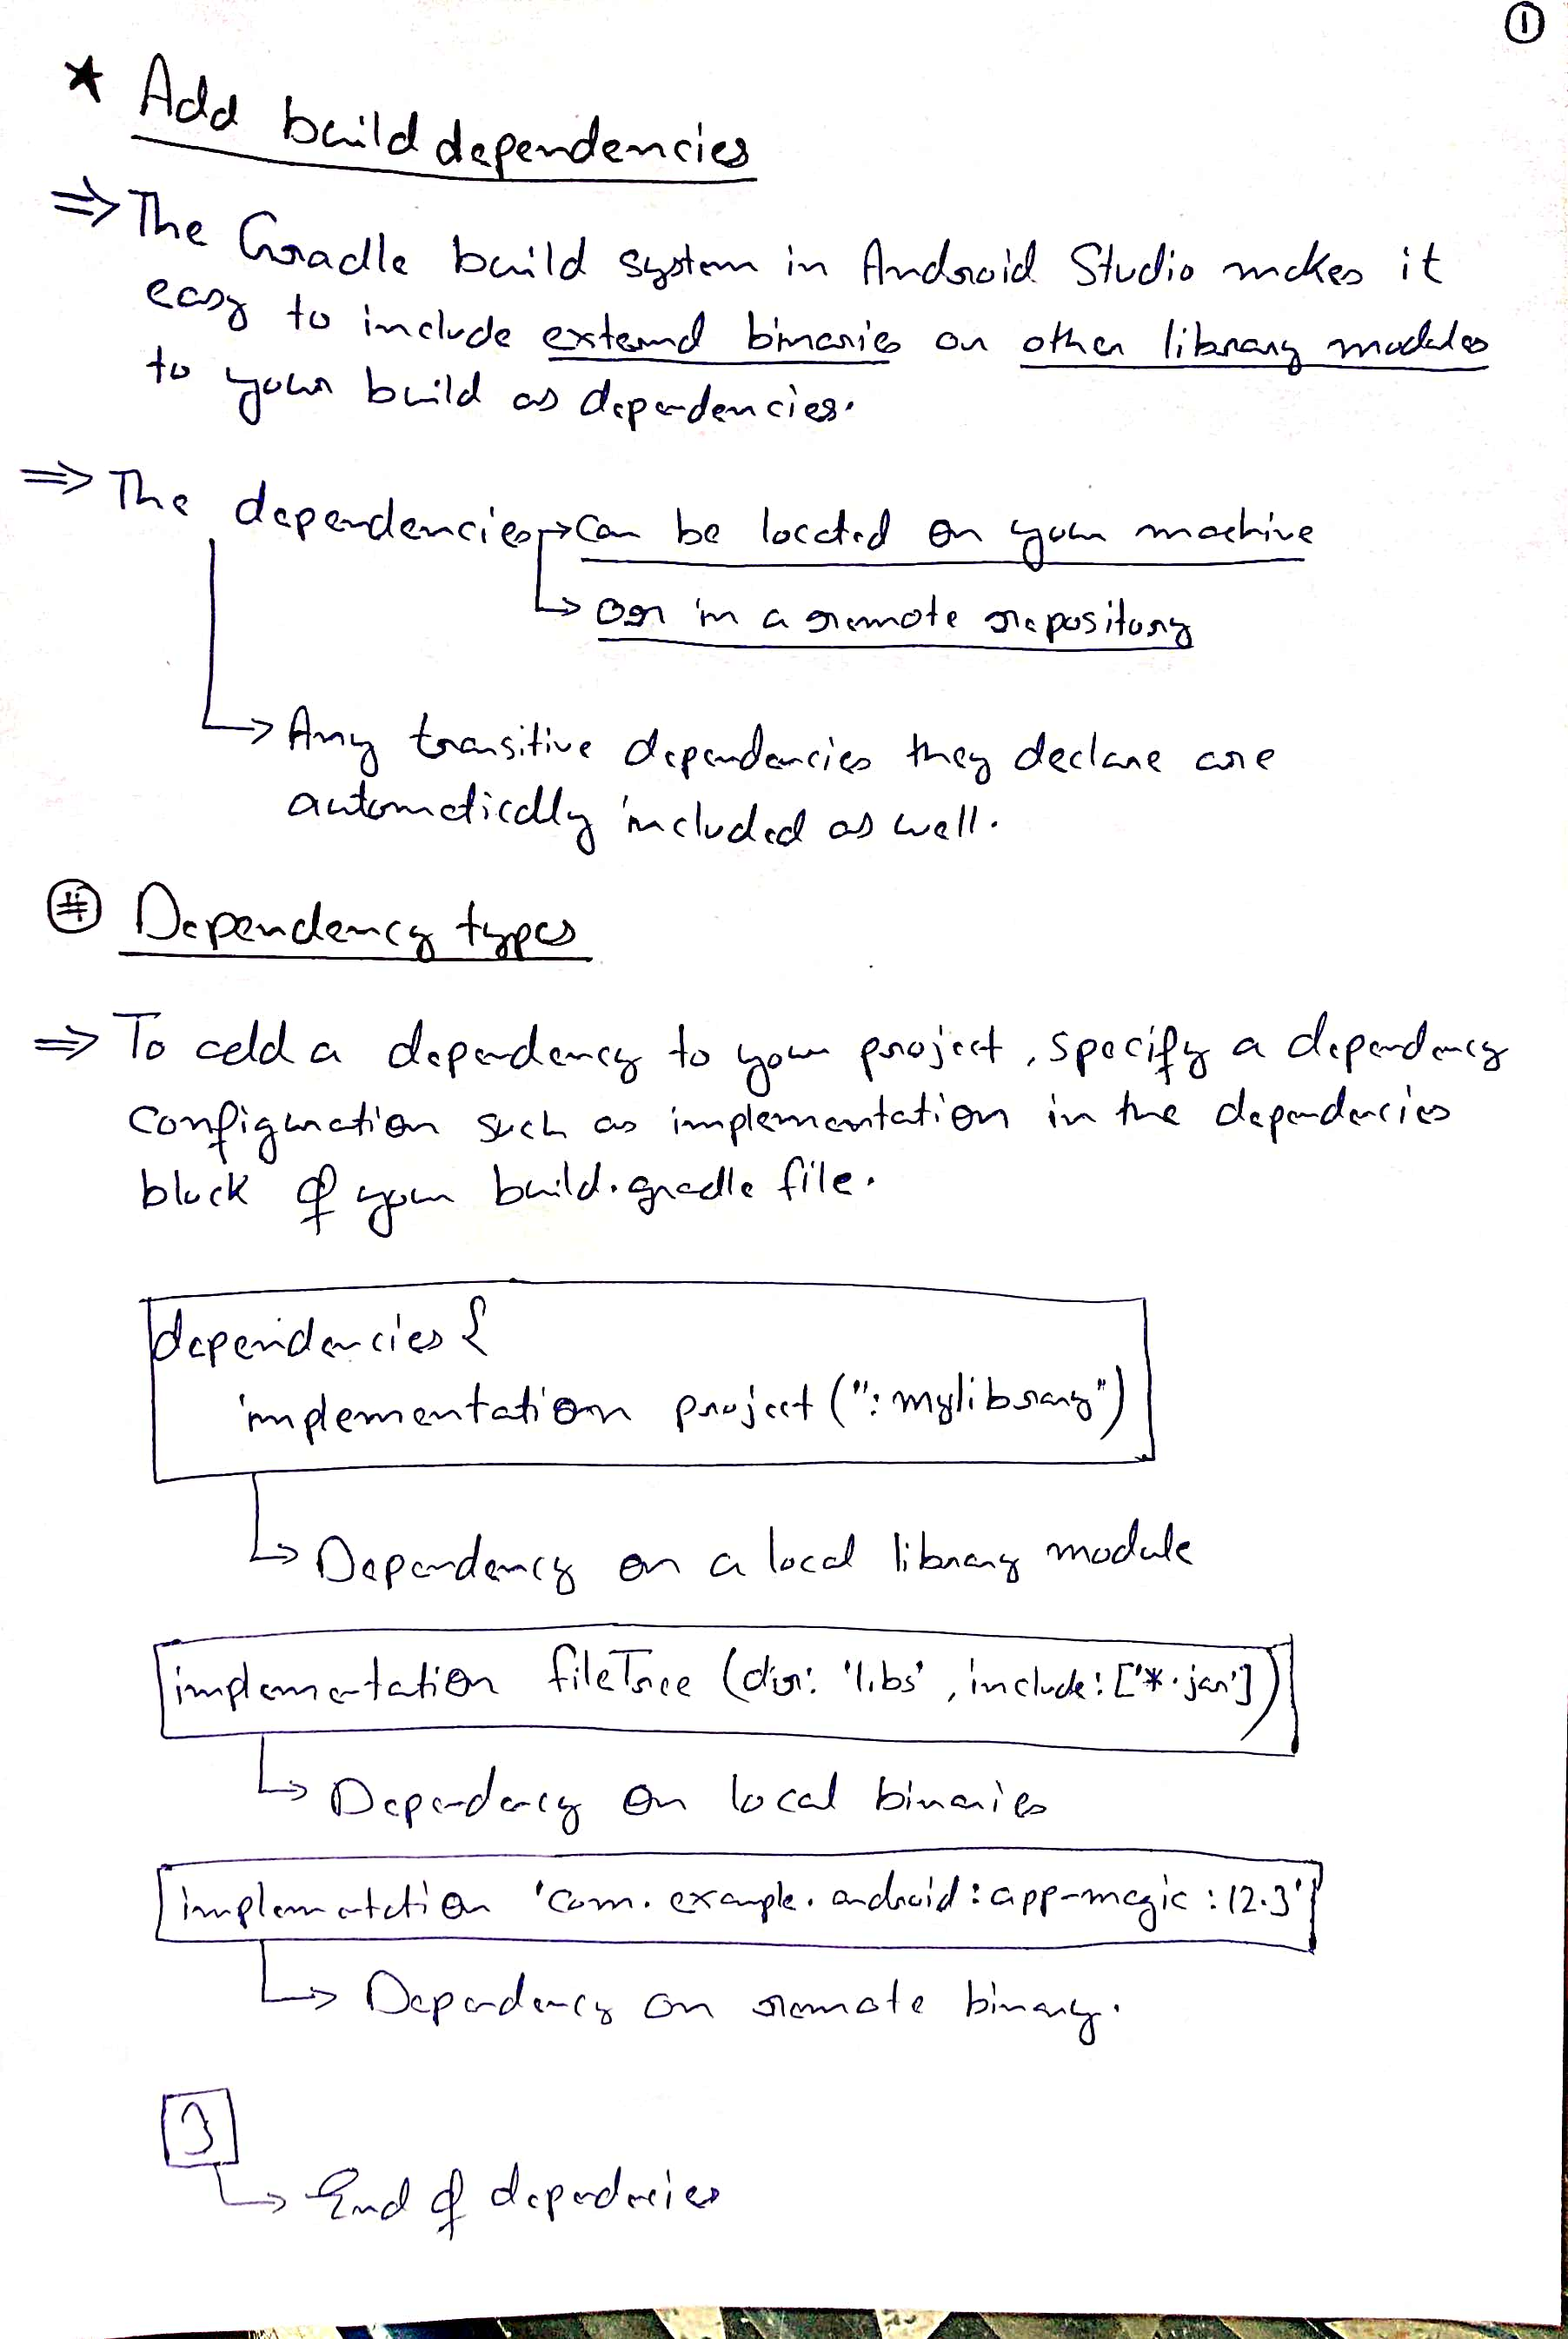 ①
* Add build dependencies
⇒ The Gradle build system in Android Studio makes it
easy to include external binaries or other library modules
to your build as dependencies.
⇒ The dependencies → can be located on your machine
↳ or in a remote repository
↳ Any transitive dependencies they declare are
automatically included as well.
# Dependency types
⇒ To add a dependency to your project, specify a dependency
configuration such as implementation in the dependencies
block of your build.gradle file.
dependencies {
implementation project (":mylibrary")
↳ Dependency on a local library module
implementation fileTree (dir: 'libs', include: ['*.jar'])
↳ Dependency on local binaries
implementation 'com.example.android:app-magic:12.3'
↳ Dependency on remote binary.
}
↳ End of dependecies